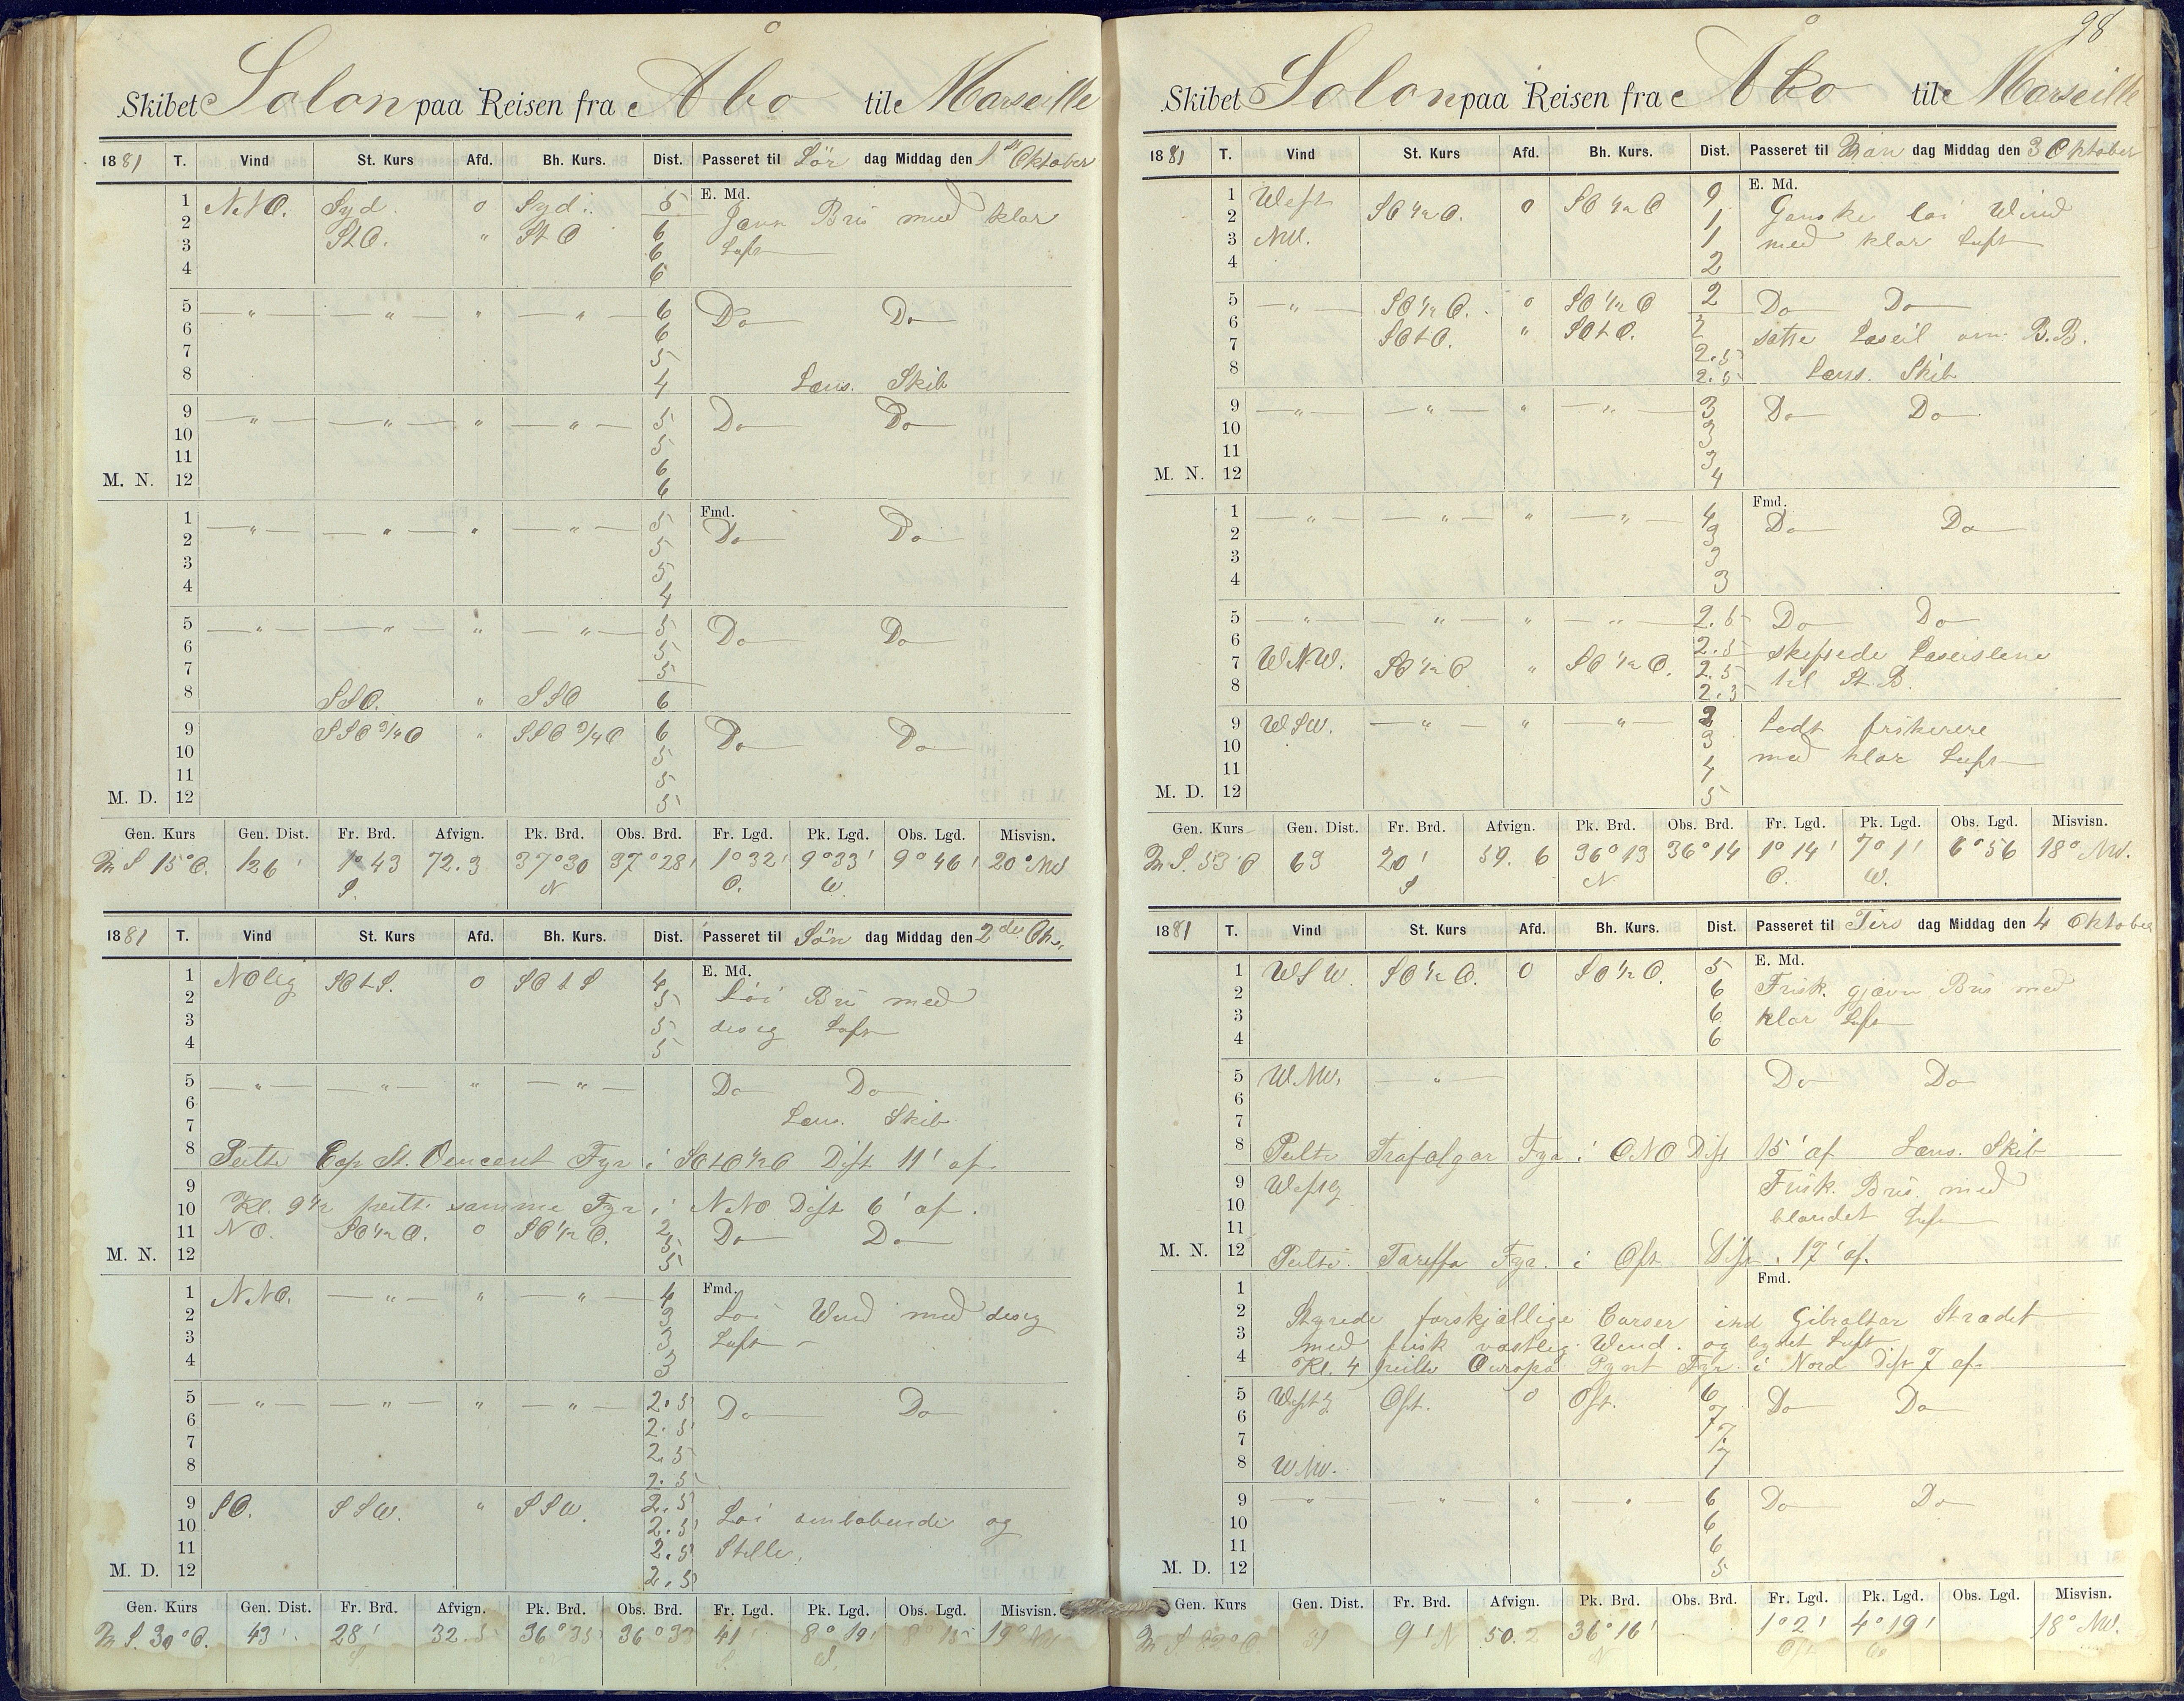 Skibet Solon paa Reisen fra Åbo til Marseille
1881 T. Vind St. Kurs Afd. Bh. Kurs. Dist. Passeret til Lör dag Middag den 1st Oktober
E. Md.
1 NNO. Syd. 0 Syd. 5 Jævn Bris med klar
2 StO. " StO 6 Luft
3 6
4 6
5 — " — — " — " — " — 6 Do Do
6 6
7 5
8 4 Læns. Skib
9 — " — — " — " — " — 5 Do Do
10 5
11 6
M. N. 12 6
Fmd.
1 — " — — " — " — " — 5 Do Do
2 5
3 5
4 4
5 — " — — " — " — " — 5 Do Do
6 5
7 5
8 SSO. " SSO 6
9 SSO 3/4 O " SSO 3/4 O 6 Do Do
10 5
11 5
M. D. 12 5
Gen. Kurs Gen. Dist. Fr. Brd. Afvign. Pk. Brd. Obs. Brd. Fr. Lgd. Pk. Lgd. Obs. Lgd. Misvisn.
S 15° O. 126' 1° 43 72.3 37° 30 37° 28' 1° 32' 9° 33' 9° 46' 20° NW
S. N O. W.
1881 T. Vind St. Kurs Afd. Bh. Kurs. Dist. Passeret til Sön dag Middag den 2de Okt.
E. Md.
1 NOlig SOtS. 0 SOtS 4 Löi Bris med
2 5
3 5 disig Luft
4 5
5 — " — — " — " — " — Do Do
6
7 Læns. Skib
8 Peilte Cap St. Vencent Fyr i SOtO 1/2 O Dist 11' af.
9
10 Kl. 9 1/2 peilte samme Fyr i NNO Dist 6' af.
11 NO. SO 1/2 O. 0 SO 1/2 O. 2 Do Do
5
M. N. 12 5
Fmd.
1 NNO. — " — " — " — 4 Löi Wind med disig
2 3
3 3 Luft
4 3
5 — " — — " — " — " — 2.5 Do Do
6 2.5
7 2.5
8 2.5
9 SO. SSW. " SSW. 2.5 Löi omlobende og
10 2.5
11 2.5 Stille.
M. D. 12 2.5
Gen. Kurs Gen. Dist. Fr. Brd. Afvign. Pk. Brd. Obs. Brd. Fr. Lgd. Pk. Lgd. Obs. Lgd. Misvisn.
S 30° O. 43' 28' 32.5 36° 35 36° 33 41' 8° 19' 8° 15 19° NW
98
Skibet Solon paa Reisen fra Åbo til Marseille
1881 T. Vind St. Kurs Afd. Bh. Kurs. Dist. Passeret til Man dag Middag den 3 Oktober
E. Md.
1 West SO 1/2 O. 0 SO 1/2 O 9 Ganske löi Wind
2 1
3 NW. 1 med klar Luft
4 2
5 — " — SO 1/2 O. 0 SO 1/2 O 2 Do Do
6 SOtO. " SOtO. 2 satte Læseil om B.B.
7 2.5
8 2.5 Læns. Skib
9 — " — — " — " — " — 3 Do Do
10 3
11 3
M. N. 12 4
Fmd.
1 — " — — " — " — " — 4 Do Do
2 3
3 3
4 3
5 — " — — " — " — " — 2.5 Do Do
6 2.5 skiftede Læseilene
7 WNW. SO 1/2 O " SO 1/2 O. 2.5
8 2.5 til St. B.
9 WSW. — " — " — " — 3 Lidt friskerere
10 3
11 4 med klar Luft
M. D. 12 5
Gen. Kurs Gen. Dist. Fr. Brd. Afvign. Pk. Brd. Obs. Brd. Fr. Lgd. Pk. Lgd. Obs. Lgd. Misvisn.
S. 53 O 63 20' 59.6 36° 13 36° 14 1° 14' 7° 1' 6° 56 18° NW.
S N O. W.
1881 T. Vind St. Kurs Afd. Bh. Kurs. Dist. Passeret til Tirs dag Middag den 4 Oktober
E. Md.
1 WSW. SO 1/2 O. 0 SO 1/2 O. 5 Frisk. gjævn Bris med
2 6
3 6 klar Luft
4 6
5 WNW. — " — Do Do
6
7
8 Peilte Trafalgar Fyr i ONO Dist 15' af Læns. Skib
9 Westlg Frisk. Bris. med
10 blandet Luft
11
M. N. 12 Peilte. Tareffa Fyr. i Ost Dist. 17' af.
Fmd.
1
2 Styrede forskjællige Curser ind Gibraltar Strædet
3 med frisk vestlig Wind. og bydet Luft
4 Kl. 4 peilte Europa Pynt Fyr i Nord Dist 7 af.
5 Westlg Ost. 0 Ost. 6 Do Do
6 7
7 7
8 WNW. 7
9 — " — " " " 6 Do Do
10 6
11 6
M. D. 12 5
Gen. Kurs Gen. Dist. Fr. Brd. Afvign. Pk. Brd. Obs. Brd. Fr. Lgd. Pk. Lgd. Obs. Lgd. Misvisn.
S 82° O. 51 9' N 50.2 36° 16' 1° 2' 4° 19' 18° NW.
N Ost W